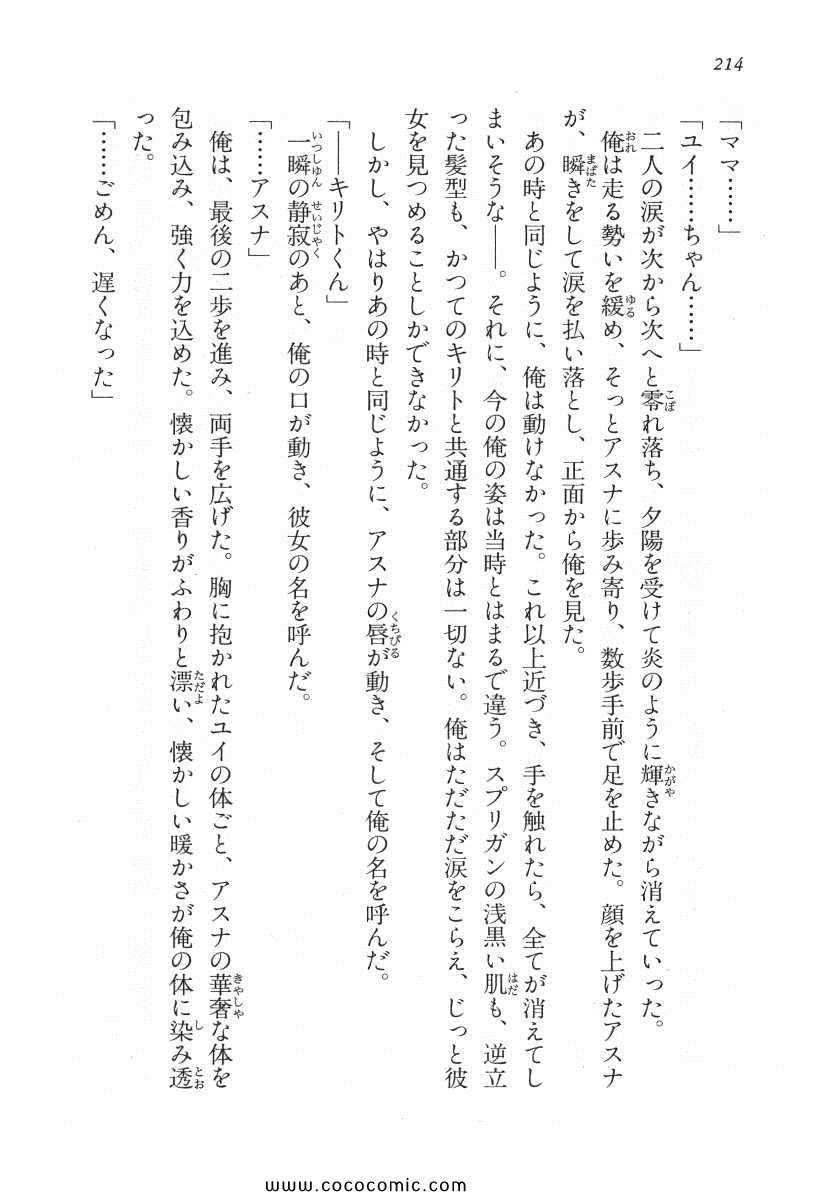 214
「ママ……」
「ユイ……ちゃん……」
二人の涙が次から次へと零れ落ち、夕陽を受けて炎のように輝きながら消えていった。
俺は走る勢いを緩め、そっとアスナに歩み寄り、数歩手前で足を止めた。顔を上げたアスナ
が、瞬きをして涙を払い落とし、正面から俺を見た。
あの時と同じように、俺は動けなかった。これ以上近づき、手を触れたら、全てが消えてし
まいそうな——。それに、今の俺の姿は当時とはまるで違う。スプリガンの浅黒い肌も、逆立
った髪型も、かつてのキリトと共通する部分は一切ない。俺はただただ涙をこらえ、じっと彼
女を見つめることしかできなかった。
しかし、やはりあの時と同じように、アスナの唇が動き、そして俺の名を呼んだ。
「——キリトくん」
一瞬の静寂のあと、俺の口が動き、彼女の名を呼んだ。
「……アスナ」
俺は、最後の二歩を進み、両手を広げた。胸に抱かれたユイの体ごと、アスナの華奢な体を
包み込み、強く力を込めた。懐かしい香りがふわりと漂い、懐かしい暖かさが俺の体に染み透
った。
「……ごめん、遅くなった」
www.cococomic.com/